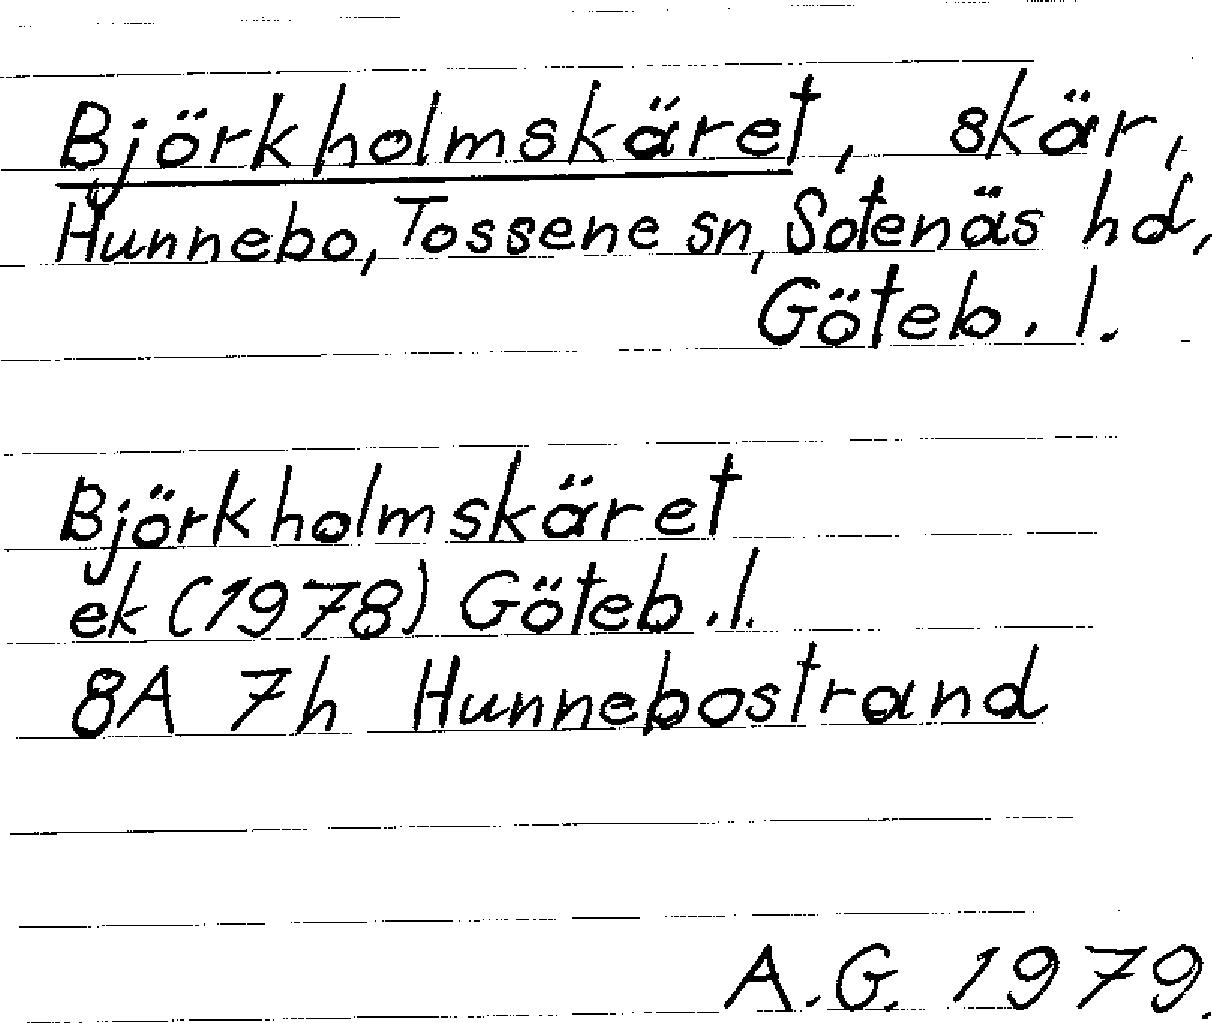 Björkholmskäret, skär,
Hunnebo, Tossene sn, Sotenäs hd,
Göteb. l.
Björkholmskäret
ek (1978) Göteb. l.
8A 7h Hunnebostrand
A.G. 1979.